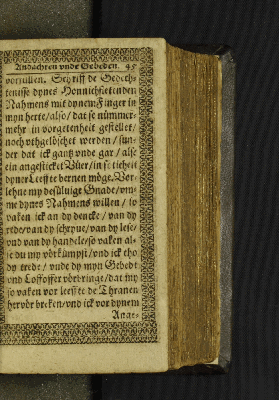 Andachten vnde Gebeden. 95
vorfüllen. Schriff de Gedecht-
tenisse dynes Honnichfletenden
Nahmens mit dynem Finger in
myn herte/also/dat se nümmer-
mehr in vorgetenheit gestellet/
noch vthgelöschet werden/sun-
der dat ick gantz vnde gar/alse
ein angesticket Vüer/in
dyner Leeffte bernen möge. Vor-
lehne my desüluige Gnade/vm-
me dynes Nahmens willen/so
vaken ick an dy dencke/van dy
rede/van dy schryue/van dy lese/
vnd van dy handele/so vaken al-
se du my vörkümpst/vnd ick tho
dy trede/vnde dy myn Gebedt
vnd Loffoffer vörbringe/dat my
so vaken vor leeffte de Thranen
hervör breken/vnd ick vor dynem
Ange-